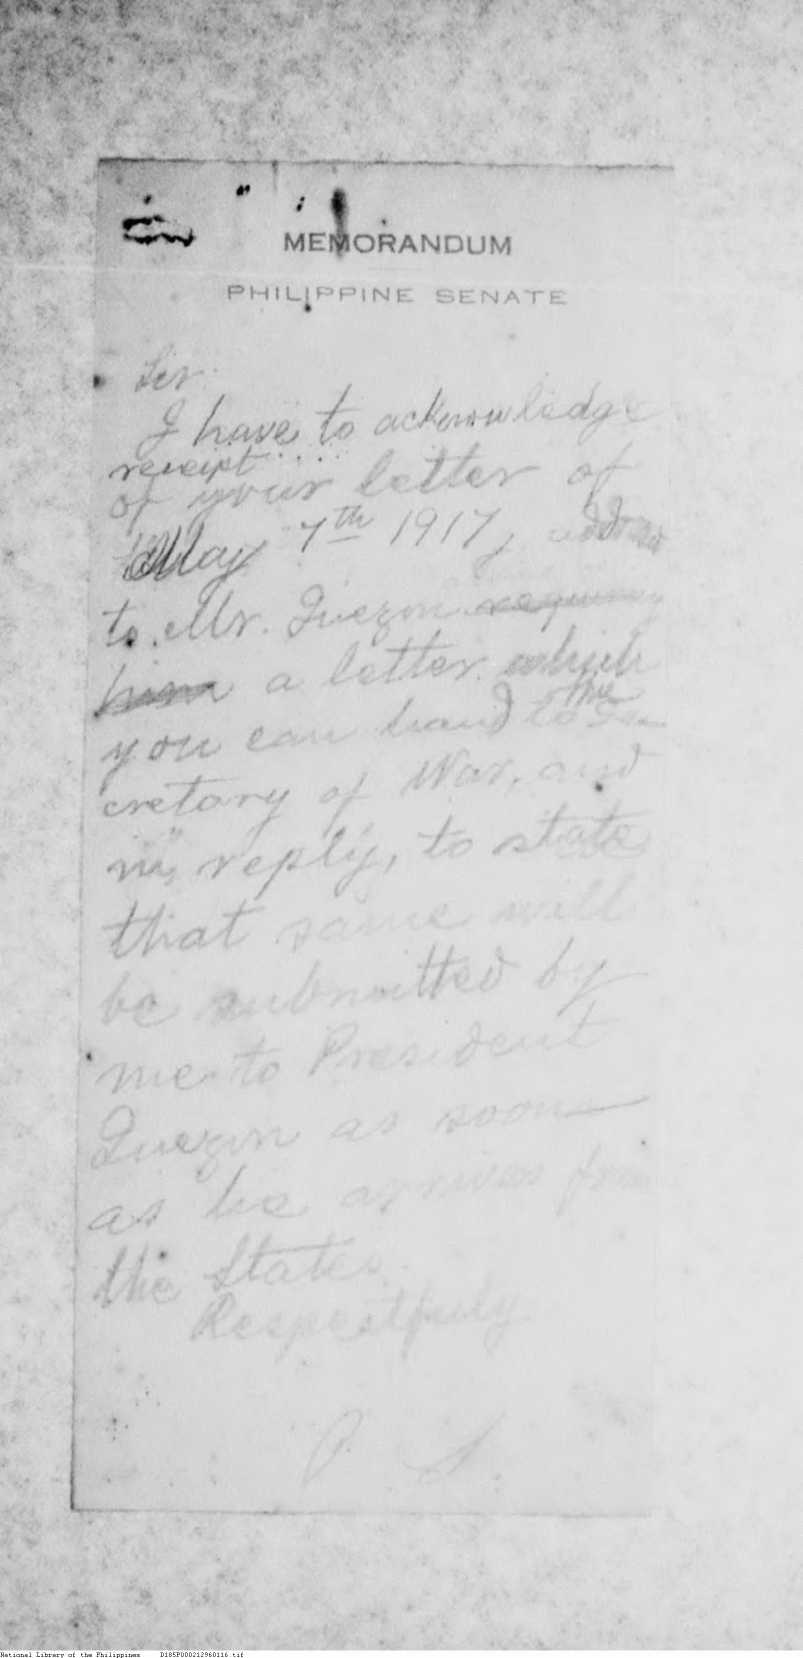 MEMORANDUM
PHILIPPINE SENATE
Sir.
I have to acknowledge
receipt
of your letter of
May 7th 1917,
to Mr. Quezon
him a letter which
you can hand to the Se
cretary of War, and
in reply, to state
that same will
be submitted by
me to President
Quezon as soon
as he arrives from
the States.
Respectfully
P. S.
National Library of the Philippines D185P000212960116.tif